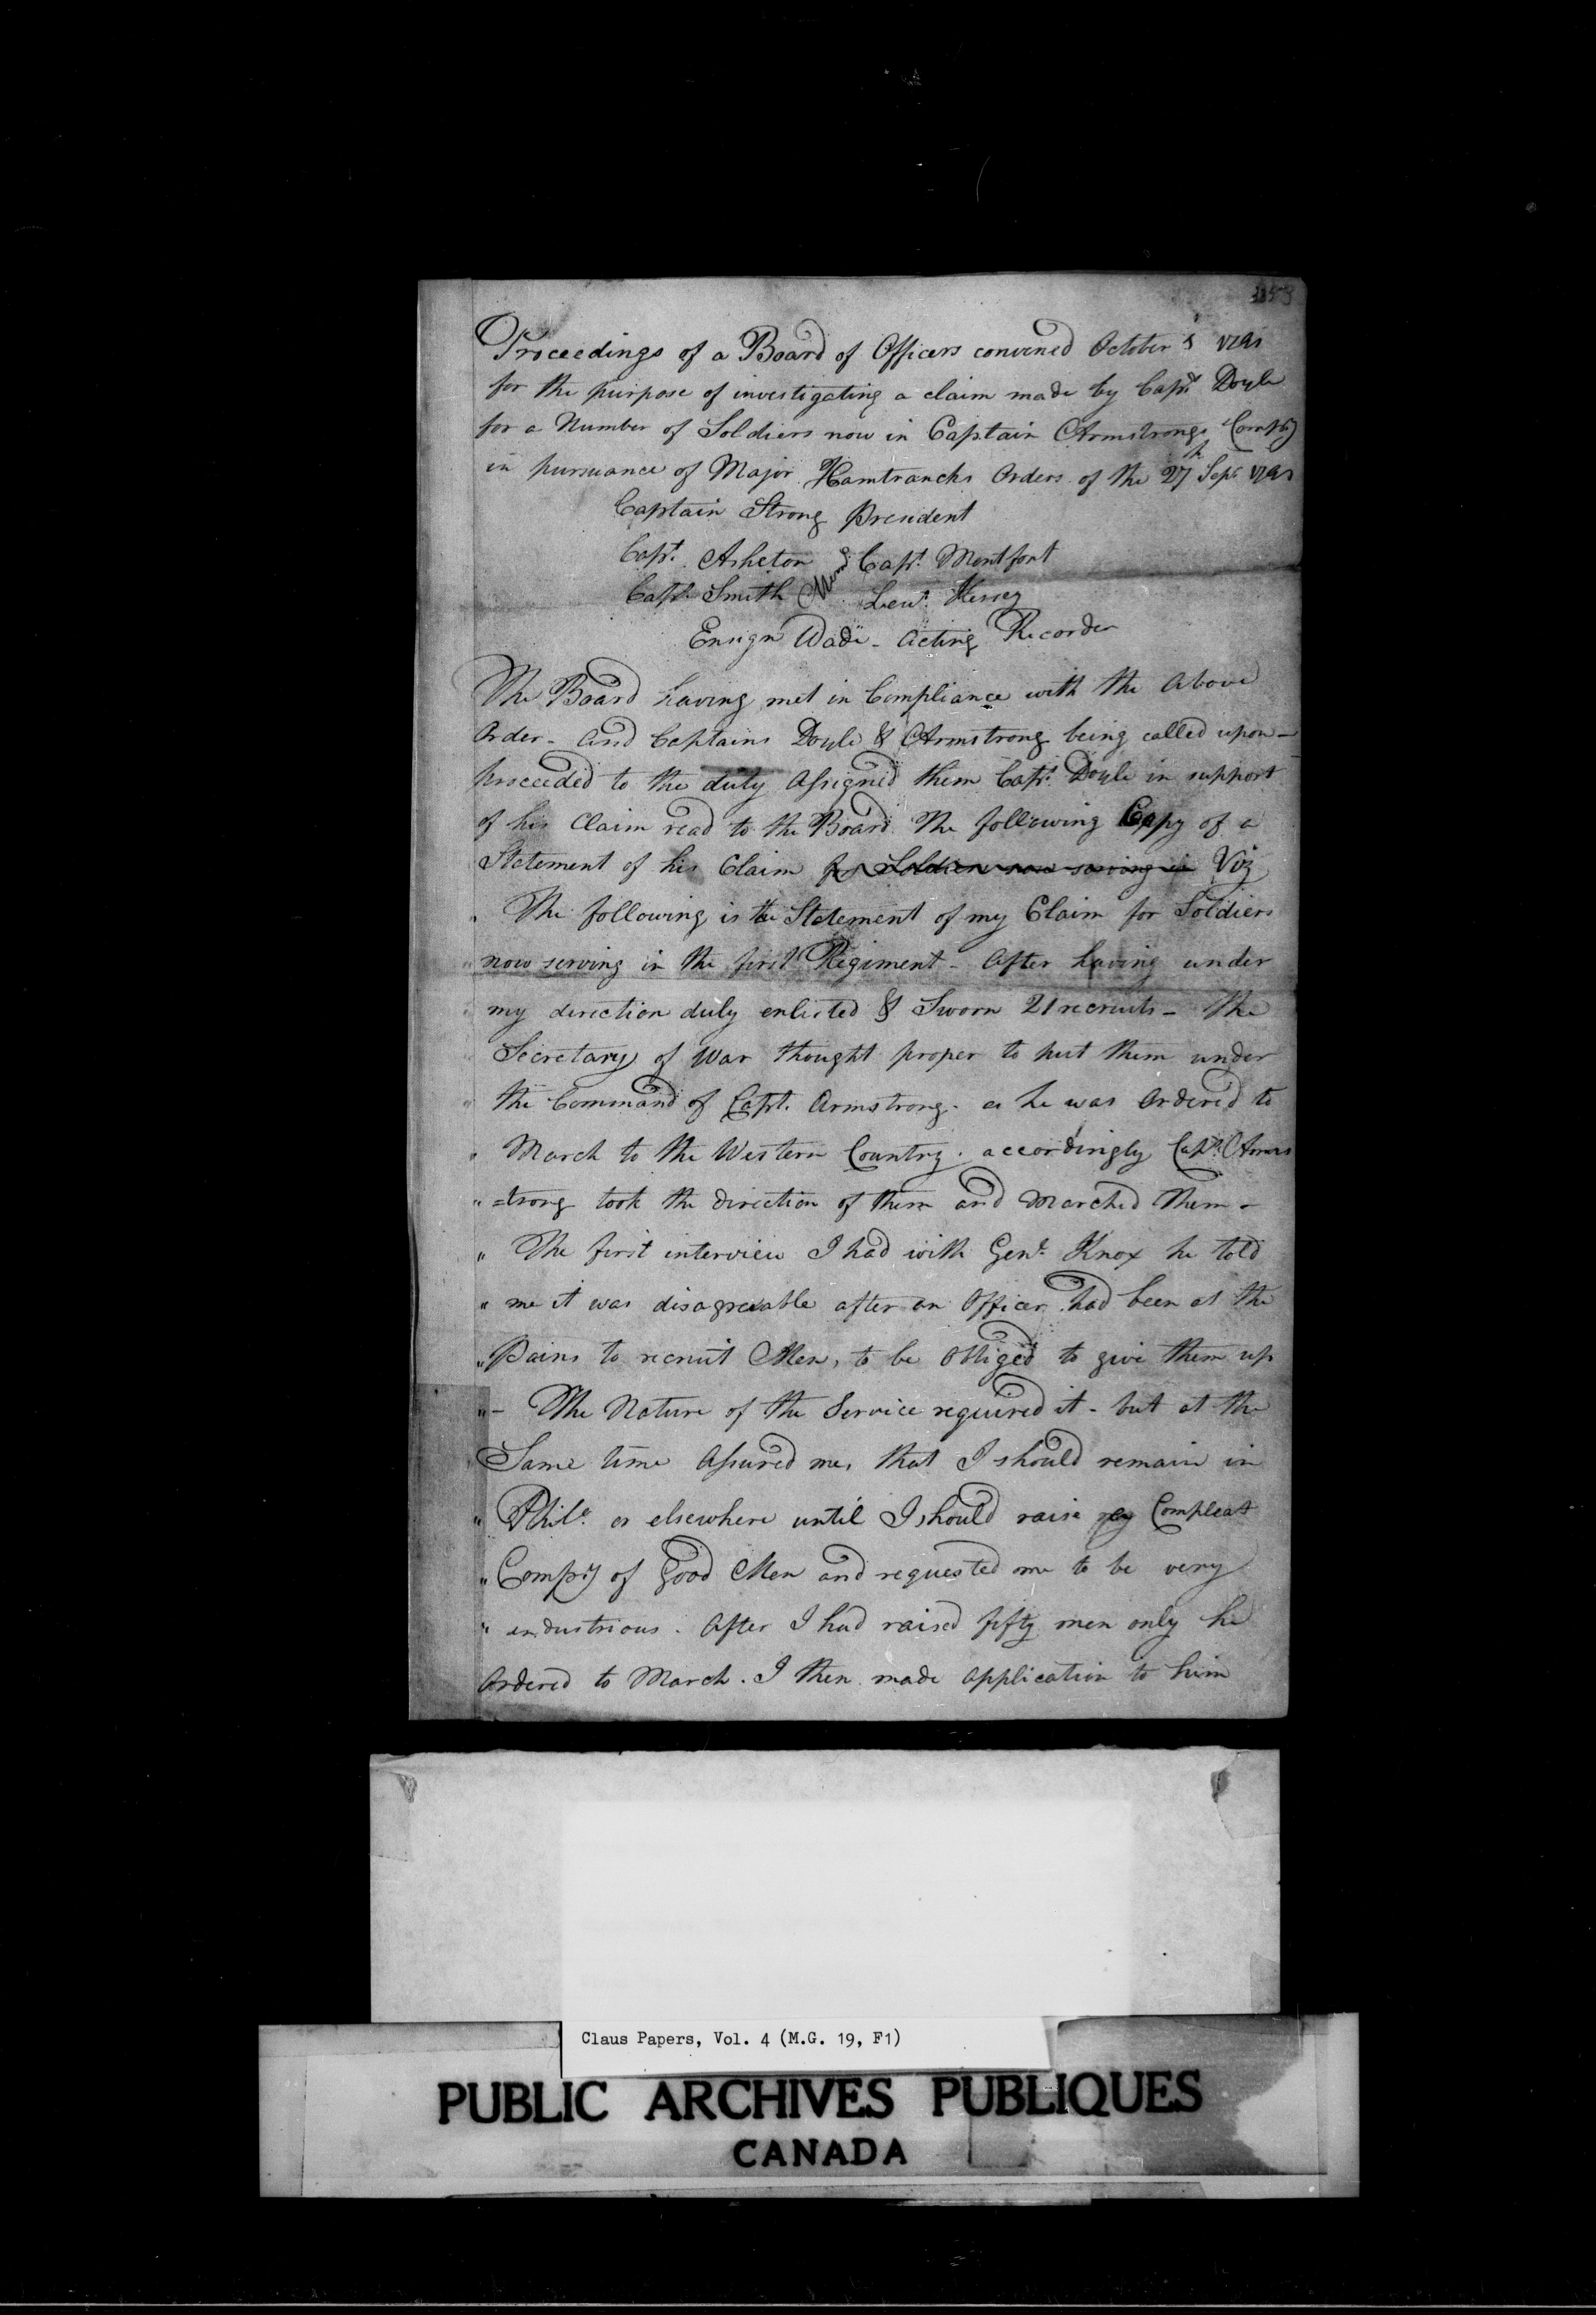 Proceedings of a Board of Officers convened October 1791
for the purpose of investigating a claim made by Capt. Doyle
for a Number of Soldiers now in Captain Armstrongs Compy
in pursuance of Major Hamtrancks Orders of the 27th Sept 1791
Captain Strong President
Capt. Asheton Capt. Montfort
Capt. Smith Lieut. Kersey
Ensign Wade - acting Recorder
The Board having met in Compliance with the above
Order - and Captains Doyle & Armstrong being called upon -
proceeded to the duty Assigned them Capt. Doyle in support
of his Claim read to the Board The following Copy of a
Statement of his Claim for Soldiers now serving in Viz
" The following is the Statement of my Claim for Soldiers
" now serving in the first Regiment - After having under
" my direction duly enlisted & Sworn 21 recruits - the
Secretary of War thought proper to put them under
" the Command of Capt. Armstrong - as he was Ordered to
" March to the Western Country. accordingly Capt. Arms
" =trong took the direction of them and marched them -
" The first interview I had with Genl. Knox he told
" me it was disagreeable after an Officer had been at the
" Pains to recruit Men, to be Obliged to give them up
" - The Nature of the Service required it - but at the
Same time Assured me, that I should remain in
" Phila. or elsewhere until I should raise my Compleat
" Compy of Good Men and requested me to be very
" industrious. After I had raised fifty men only he
Ordered to March. I then made application to him
Claus Papers, Vol. 4 (M.G. 19, F1)
PUBLIC ARCHIVES PUBLIQUES
CANADA